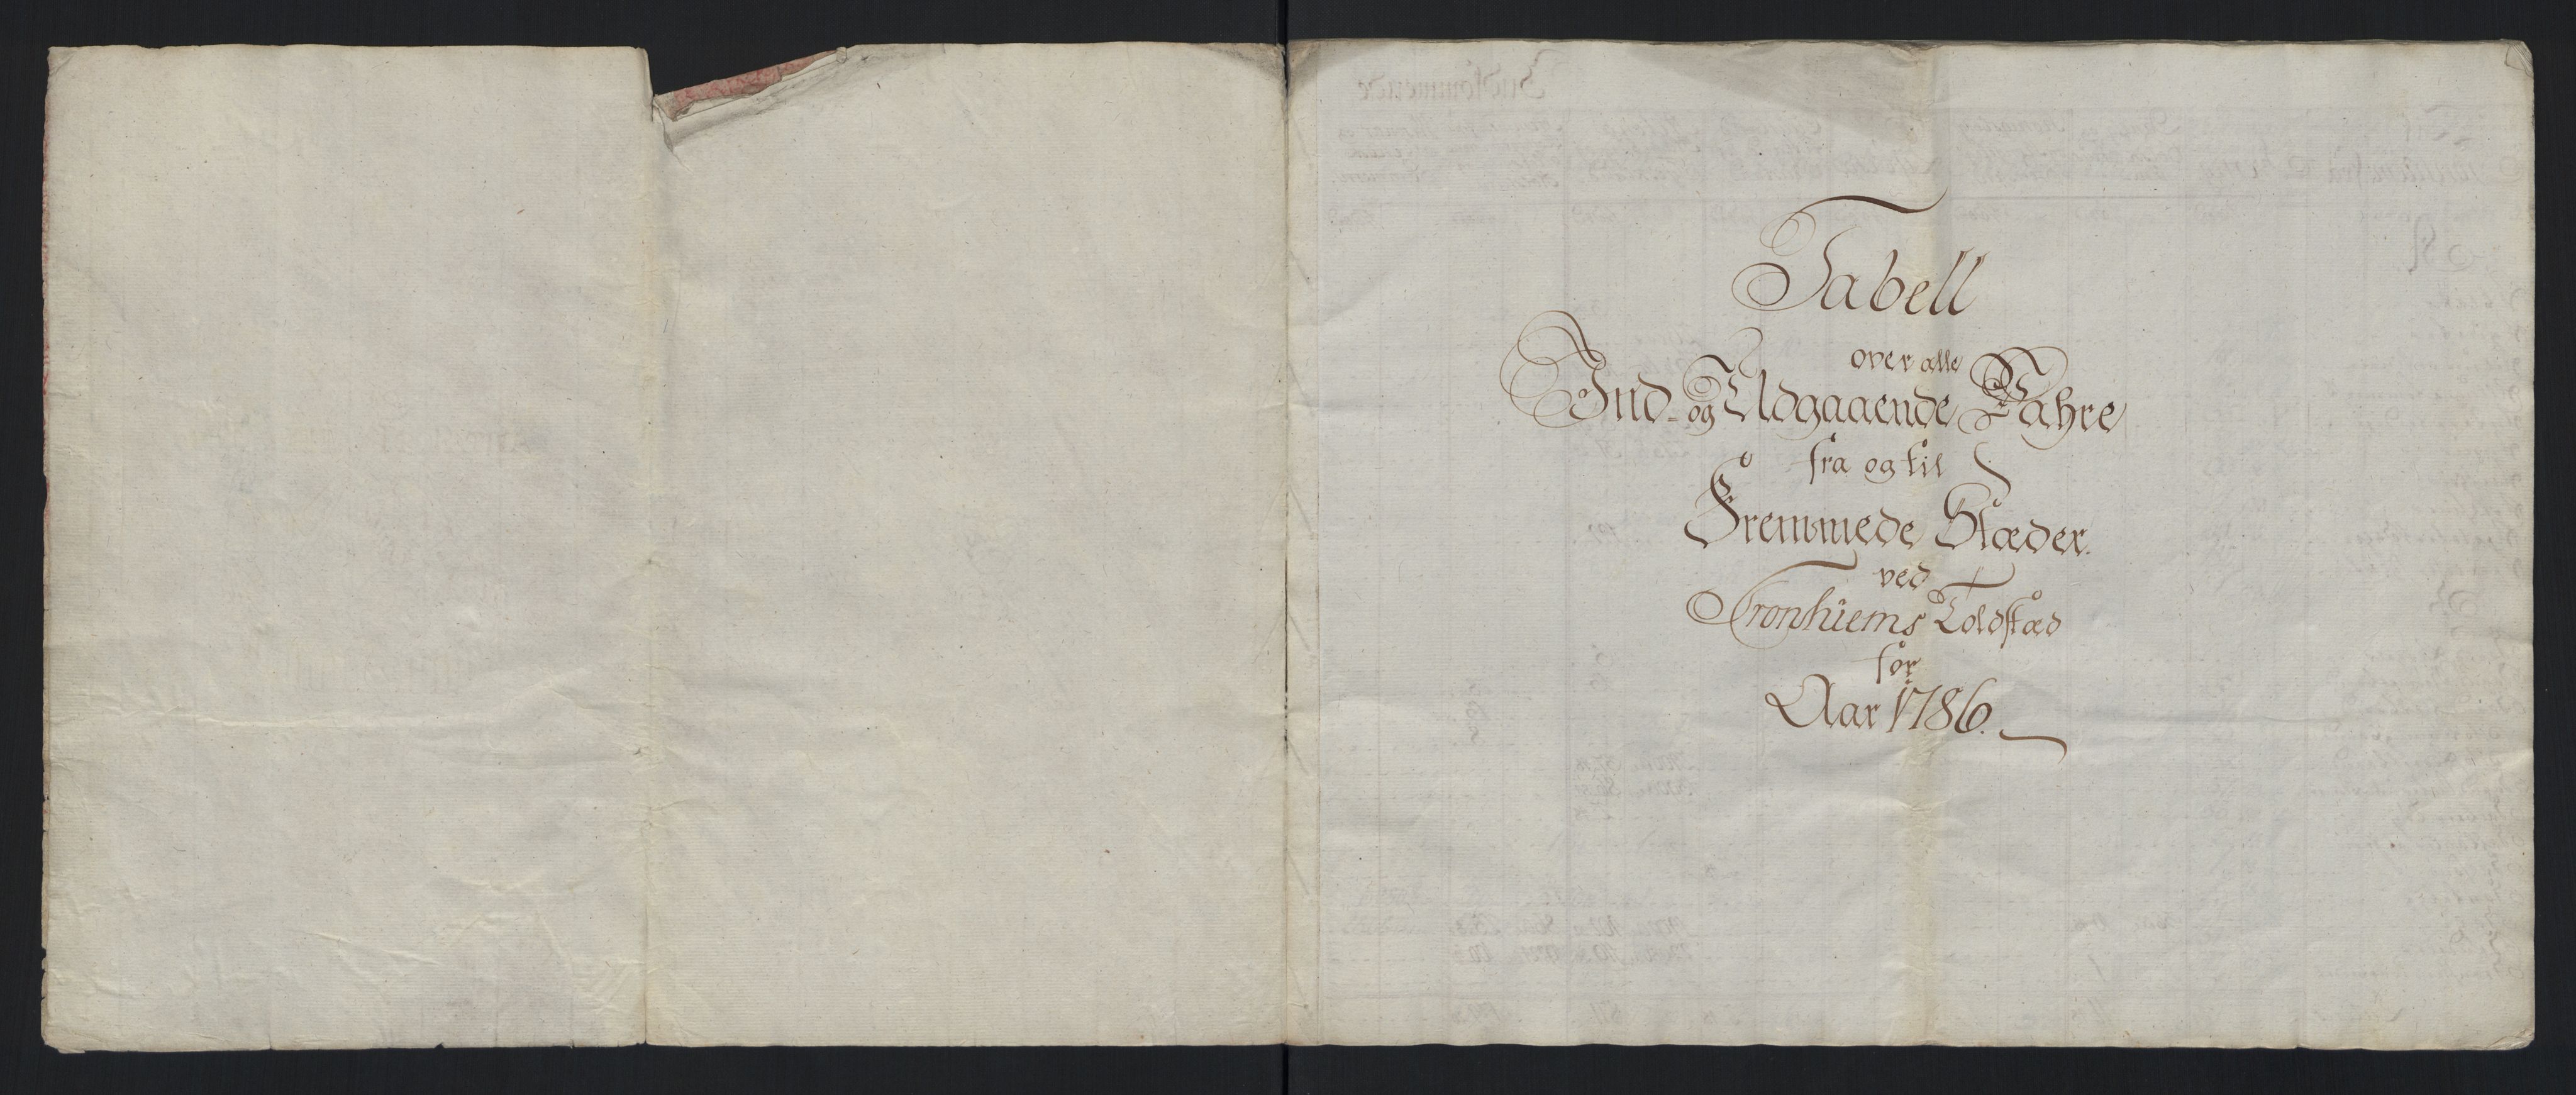 Tabell
over alle
Ind- og Udgaaende Vahre
fra og til
Fremmede Stæder.
ved
Tronhiems Toldstæd
for
Aar 1786.